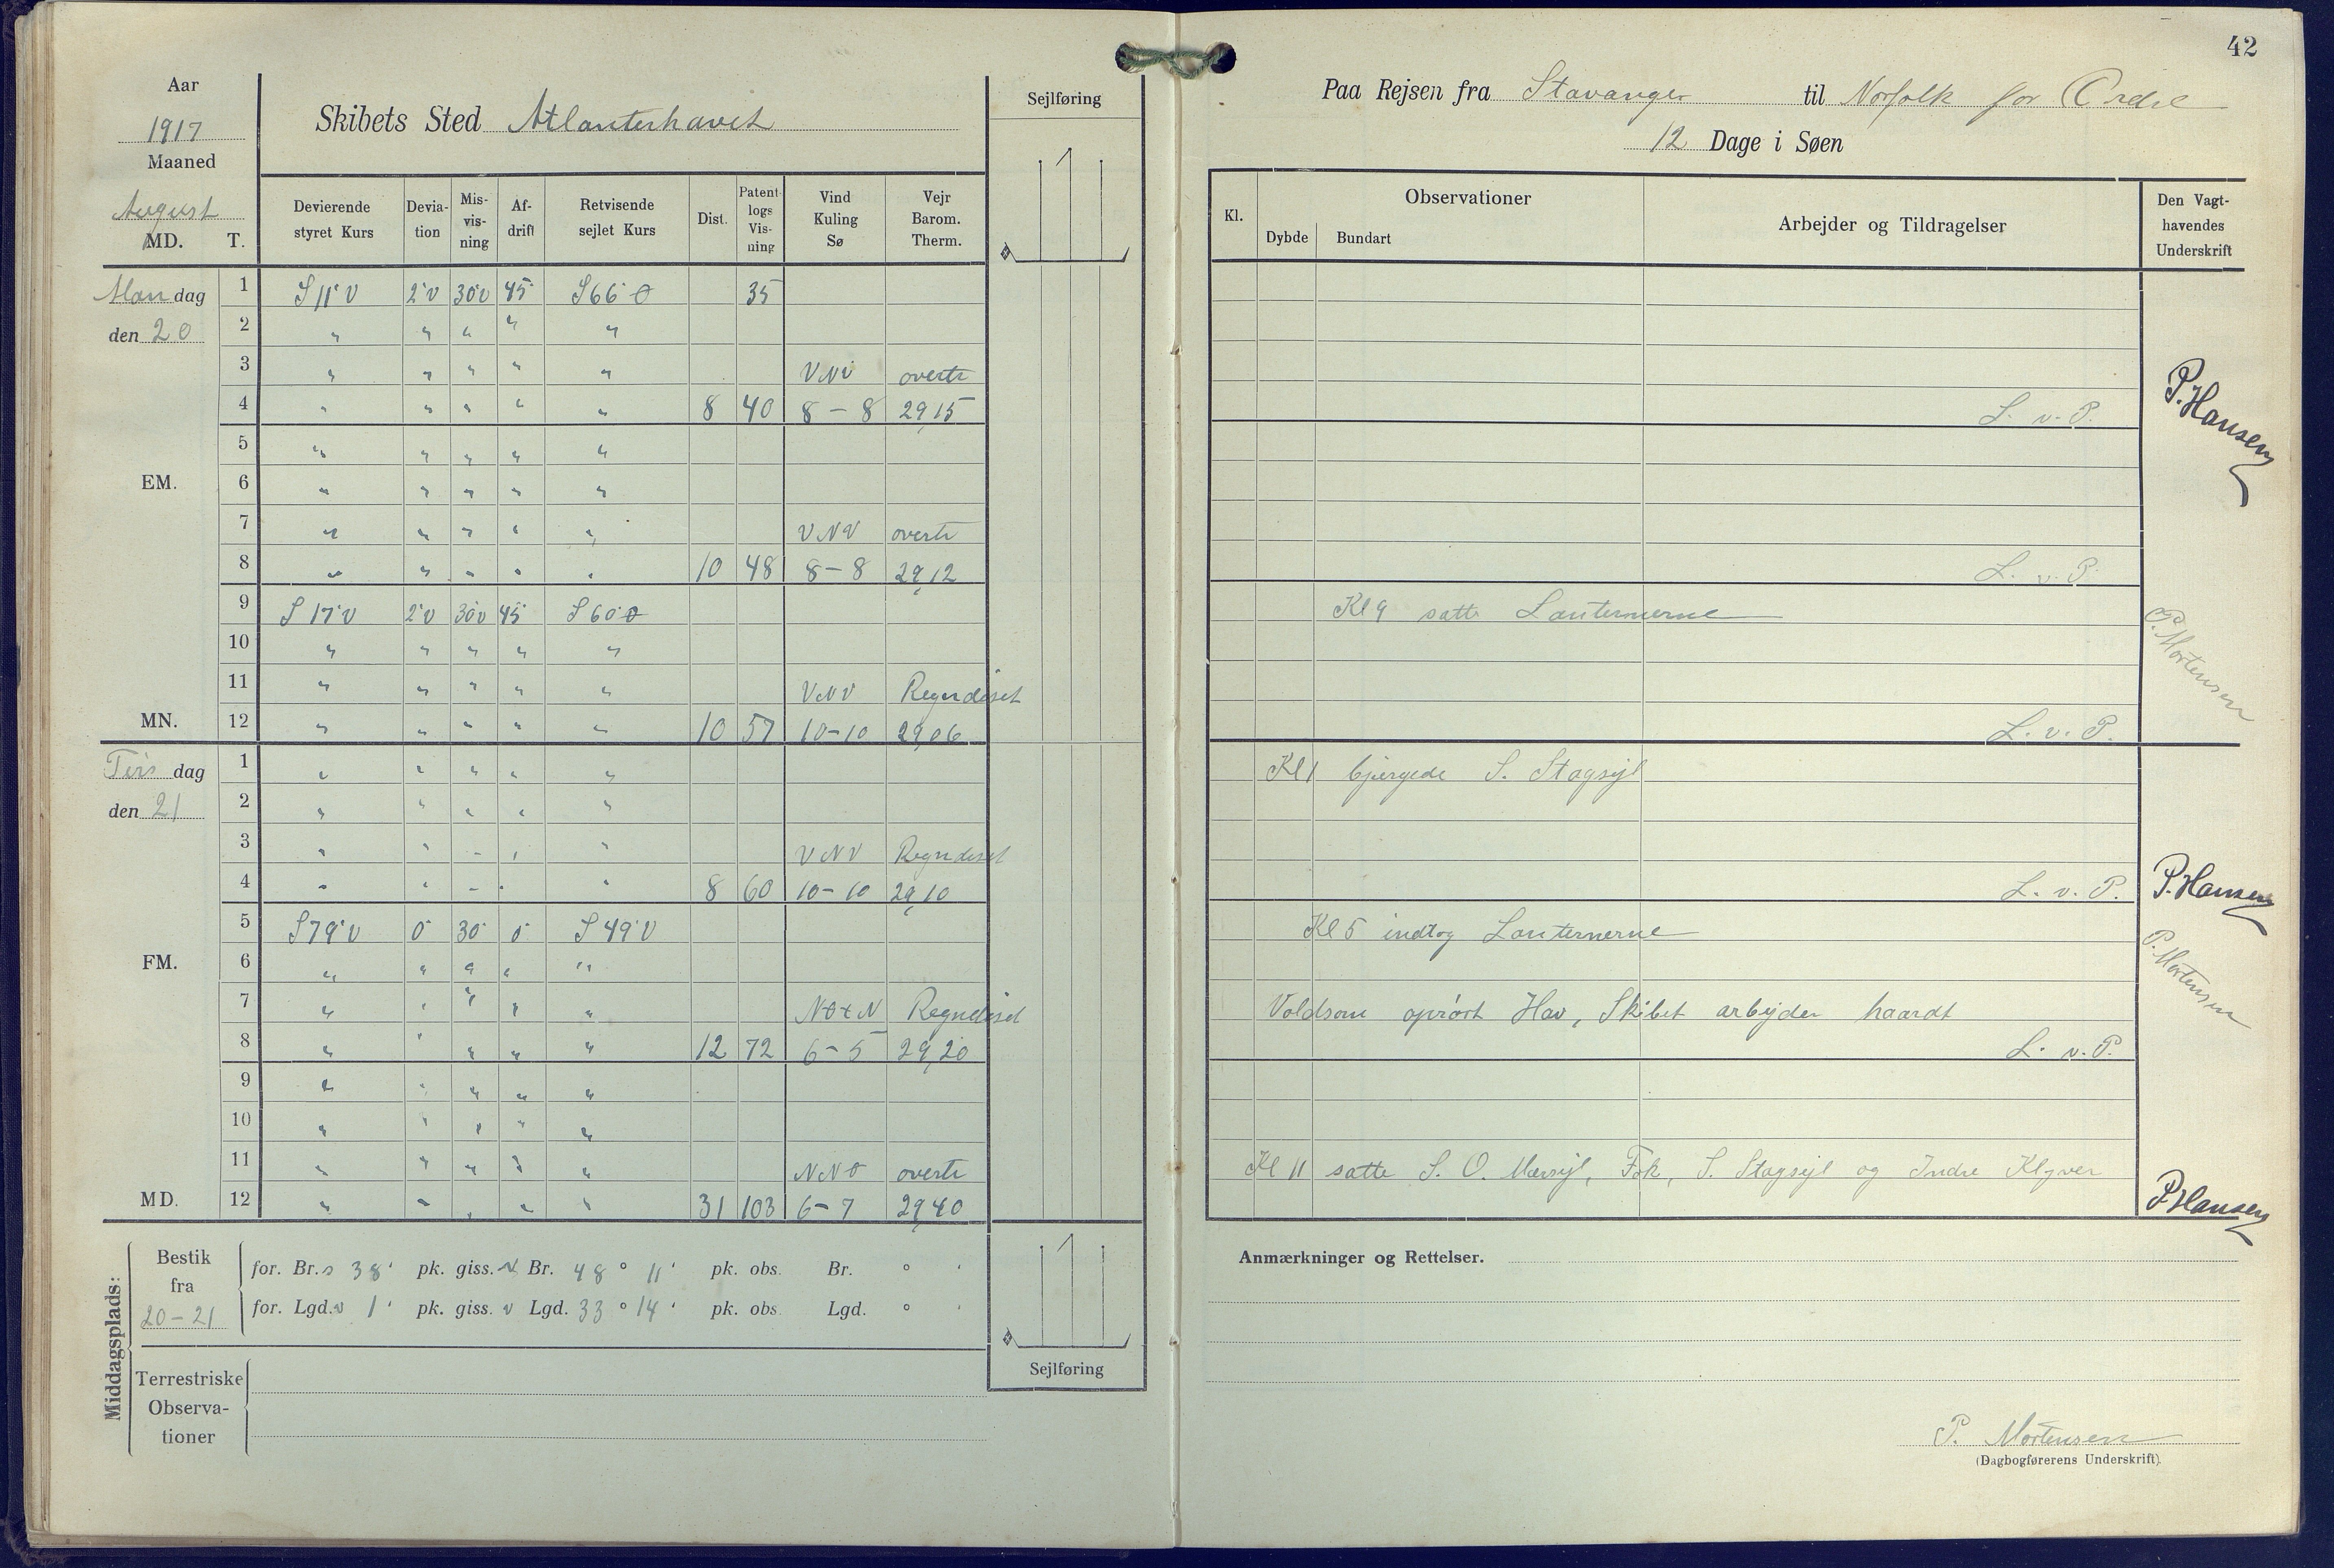 Aar
1917
Maaned
August
MD. T.
Skibets Sted Atlanterhavet
Sejlføring
Devierende styret Kurs
Deviation
Misvisning
Afdrift
Retvisende sejlet Kurs
Dist.
Patentlogs Visning
Vind Kuling Sø
Vejr Barom. Therm.
Mandag 1 S 11° V 2° V 30 V 45° S 66° O 35
den 20 2 " " " " "
3 " " " " " VNV overtr
4 " " " " " 8 40 8 – 8 29,15
5 " " " " "
EM. 6 " " " " "
7 " " " " " VNV overtr
8 " " " " " 10 48 8 – 8 29,12
9 S 17° V 2° V 30 V 45° S 60° O
10 " " " " "
11 " " " " " VNV Regndiset
MN. 12 " " " " " 10 57 10–10 29,06
Tirsdag 1 " " " " "
den 21 2 " " " " "
3 " " " " " VNV Regndiset
4 " " " " " 8 60 10–10 29,10
5 S 79° V 0° 30° 0° S 49° V
FM. 6 " " " " "
7 " " " " " NOtN Regndiset
8 " " " " " 12 72 6–5 29,20
9 " " " " "
10 " " " " "
11 " " " " " NNO overtr
MD. 12 " " " " " 31 103 6–7 29,40
Middagsplads:
Bestik fra 20–21
for. Br. s 38' pk. giss. N Br. 48° 11' pk. obs. Br. ° '
for. Lgd. v 1' pk. giss. v Lgd. 33° 14' pk. obs. Lgd. ° '
Terrestriske Observationer
Sejlføring
42
Paa Rejsen fra Stavanger til Norfolk for Ordre
12 Dage i Søen
Kl.
Observationer
Dybde Bundart
Arbejder og Tildragelser
Den Vagthavendes Underskrift
L. v. P.
P. Hansen
L. v. P.
Kl 9 satte Lanternerne
P. Mortensen
L. v. P.
Kl 1 bjergede S. Stagsejl
L. v. P. P. Hansen
Kl 5 indtog Lanternerne
P. Mortensen
Voldsom oprørt Hav, Skibet arbejder haardt
L. v. P.
Kl 11 satte S. O. Mersejl, Fok, S. Stagsejl og Indre Klyver
P. Hansen
Anmærkninger og Rettelser.
P. Mortensen
(Dagbogførerens Underskrift).